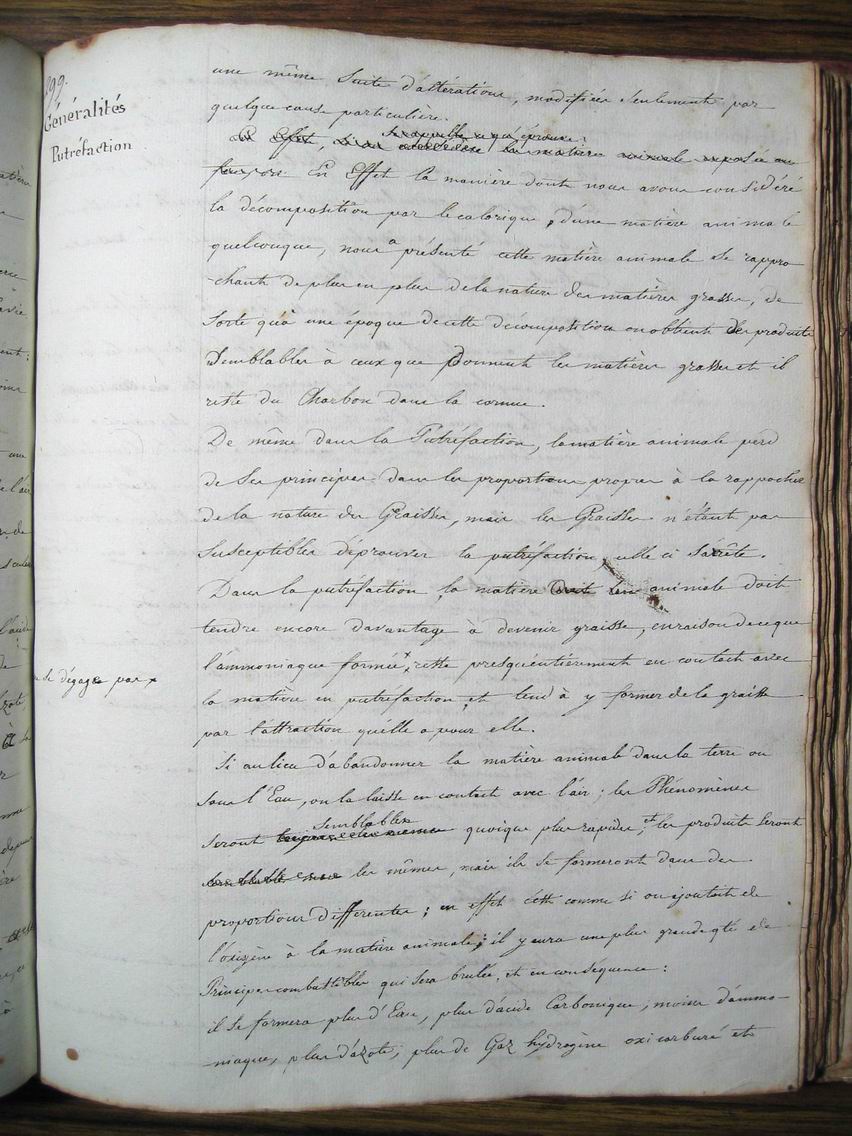 299.
Généralités
Putréfaction
une même Suite d'altérations, modifiées Seulement par
quelque cause particulière.
En Effet la manière dont nous avons considéré
la décomposition par le calorique, d'une matière animale
quelconque, nous a présenté cette matière animale se rappro
chant de plus en plus de la nature des matières grasses, de
Sorte qu'à une époque de cette décomposition on obtient des produits
Semblables à ceux que donnent les matières grasses et il
reste du Charbon dans la cornue.
De même dans la Putréfaction, la matière animale perd
de Ses principes dans les proportions propres à la rapprocher
de la nature des Graisses, mais les Graisses n'étant pas
Susceptibles d'éprouver la putréfaction, celle ci s'arrête.
Dans la putréfaction, la matière animale doit
tendre encore davantage à devenir graisse, en raison de ce que
l'ammoniaque formée x, reste presqu'entièrement en contact avec
se dégage pas x
la matière en putréfaction, et tend à y former de la graisse
par l'attraction qu'elle a pour elle.
Si au lieu d'abandonner la matière animale dans la terre ou
Sous l'Eau, on la laisse en contact avec l'air ; les Phénomènes
Semblables
Seront quoique plus rapides, et les produits Seront
les mêmes, mais ils se formeront dans des
proportions differentes ; en effet c'est comme si on ajoutait de
l'oxigène à la matière animale ; il y aura une plus grande qté de
Principes combustibles qui sera brulée, et en conséquence :
il se formera plus d'Eau, plus d'acide Carbonique, moins d'ammo-
niaque, plus d'azote, plus de Gaz hydrogène oxi carburé et